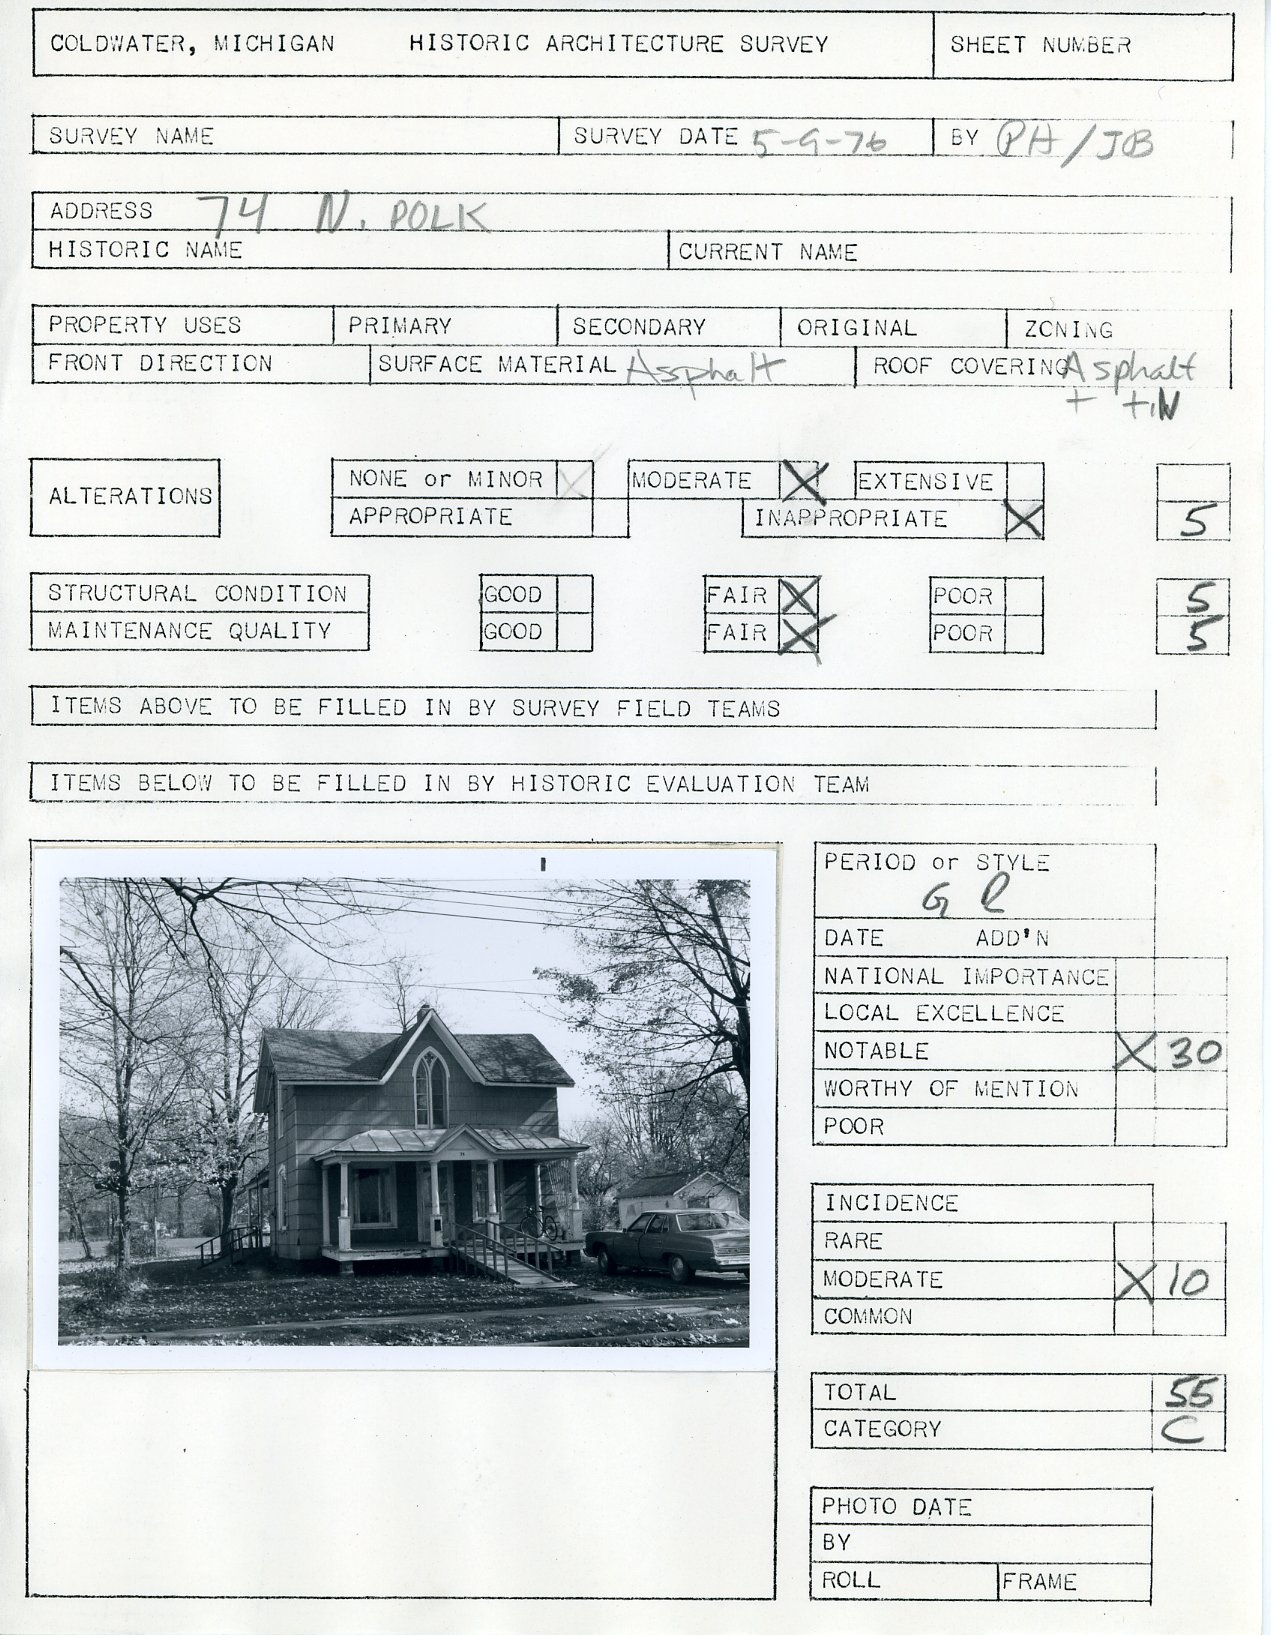 COLDWATER, MICHIGAN HISTORIC ARCHITECTURE SURVEY SHEET NUMBER
SURVEY NAME SURVEY DATE 5-9-76 BY PH/JOB
ADDRESS 74 N. POLK
HISTORIC NAME CURRENT NAME
PROPERTY USES PRIMARY SECONDARY ORIGINAL ZONING
FRONT DIRECTION SURFACE MATERIAL Asphalt ROOF COVERING Asphalt
+ tiN
ALTERATIONS
NONE or MINOR X MODERATE X EXTENSIVE
APPROPRIATE INAPPROPRIATE X 5
STRUCTURAL CONDITION GOOD FAIR X POOR 5
MAINTENANCE QUALITY GOOD FAIR X POOR 5
ITEMS ABOVE TO BE FILLED IN BY SURVEY FIELD TEAMS
ITEMS BELOW TO BE FILLED IN BY HISTORIC EVALUATION TEAM
PERIOD or STYLE
G R
DATE ADD'N
NATIONAL IMPORTANCE
LOCAL EXCELLENCE
NOTABLE X 30
WORTHY OF MENTION
POOR
INCIDENCE
RARE
MODERATE X 10
COMMON
TOTAL 55
CATEGORY C
PHOTO DATE
BY
ROLL FRAME